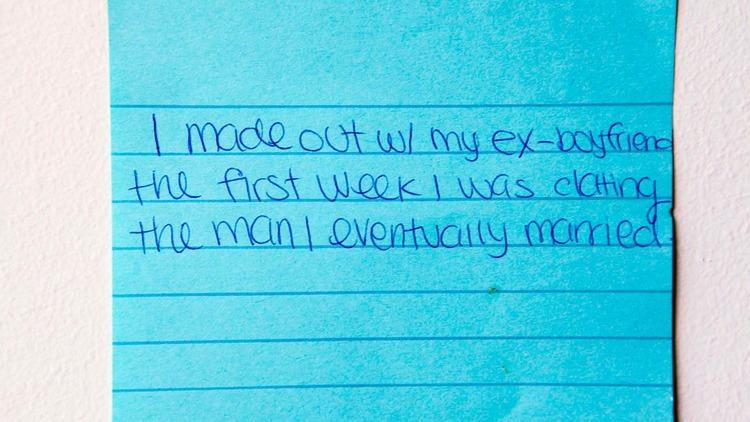 I made out w/ my ex-boyfriend
the first week I was dating
the man I eventually married.